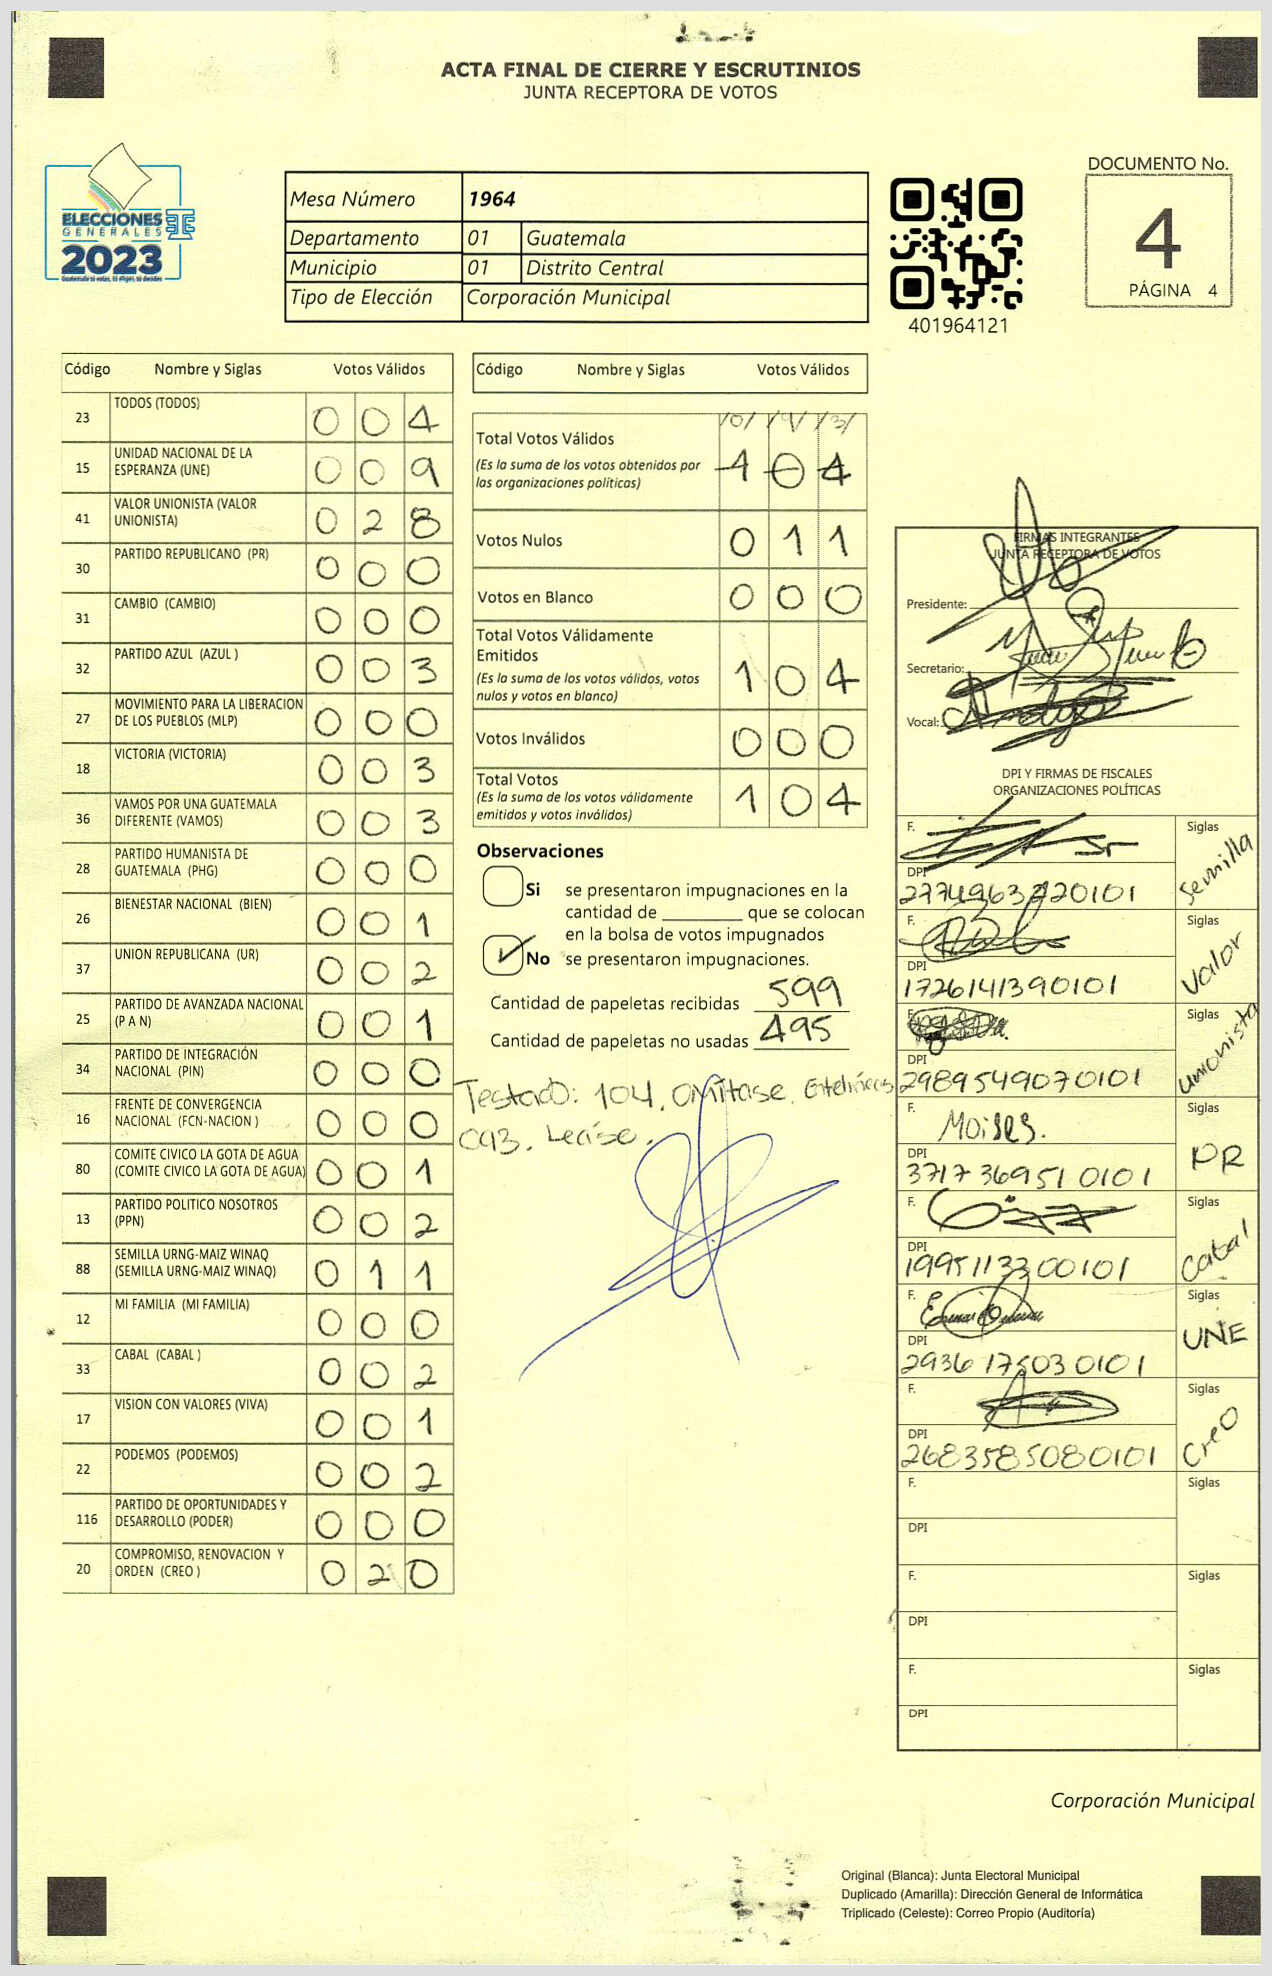 ACTA FINAL DE CIERRE Y ESCRUTINIOS
JUNTA RECEPTORA DE VOTOS
ELECCIONES
GENERALES
2023
Mesa Número 1964
Departamento 01 Guatemala
Municipio 01 Distrito Central
Tipo de Elección Corporación Municipal
401964121
DOCUMENTO No.
4
PÁGINA 4
Código Nombre y Siglas Votos Válidos
23 TODOS (TODOS) 0 0 4
15 UNIDAD NACIONAL DE LA
ESPERANZA (UNE) 0 0 9
41 VALOR UNIONISTA (VALOR
UNIONISTA) 0 2 8
30 PARTIDO REPUBLICANO (PR) 0 0 0
31 CAMBIO (CAMBIO) 0 0 0
32 PARTIDO AZUL (AZUL ) 0 0 3
27 MOVIMIENTO PARA LA LIBERACION
DE LOS PUEBLOS (MLP) 0 0 0
18 VICTORIA (VICTORIA) 0 0 3
36 VAMOS POR UNA GUATEMALA
DIFERENTE (VAMOS) 0 0 3
28 PARTIDO HUMANISTA DE
GUATEMALA (PHG) 0 0 0
26 BIENESTAR NACIONAL (BIEN) 0 0 1
37 UNION REPUBLICANA (UR) 0 0 2
25 PARTIDO DE AVANZADA NACIONAL
(P A N) 0 0 1
34 PARTIDO DE INTEGRACIÓN
NACIONAL (PIN) 0 0 0
16 FRENTE DE CONVERGENCIA
NACIONAL (FCN-NACION ) 0 0 0
80 COMITE CIVICO LA GOTA DE AGUA
(COMITE CIVICO LA GOTA DE AGUA) 0 0 1
13 PARTIDO POLITICO NOSOTROS
(PPN) 0 0 2
88 SEMILLA URNG-MAIZ WINAQ
(SEMILLA URNG-MAIZ WINAQ) 0 1 1
12 MI FAMILIA (MI FAMILIA) 0 0 0
33 CABAL (CABAL ) 0 0 2
17 VISION CON VALORES (VIVA) 0 0 1
22 PODEMOS (PODEMOS) 0 0 2
116 PARTIDO DE OPORTUNIDADES Y
DESARROLLO (PODER) 0 0 0
20 COMPROMISO, RENOVACION Y
ORDEN (CREO ) 0 2 0
Código Nombre y Siglas Votos Válidos
/0/ /9/ /3/
Total Votos Válidos
(Es la suma de los votos obtenidos por
las organizaciones políticas) 1 0 4
Votos Nulos 0 1 1
Votos en Blanco 0 0 0
Total Votos Válidamente
Emitidos
(Es la suma de los votos válidos, votos
nulos y votos en blanco) 1 0 4
Votos Inválidos 0 0 0
Total Votos
(Es la suma de los votos válidamente
emitidos y votos inválidos) 1 0 4
Observaciones
Si se presentaron impugnaciones en la
cantidad de ________ que se colocan
en la bolsa de votos impugnados
No se presentaron impugnaciones.
Cantidad de papeletas recibidas 599
Cantidad de papeletas no usadas 495
Testado: 104, Omitase.
093. Léase.
FIRMAS INTEGRANTES
JUNTA RECEPTORA DE VOTOS
Presidente:
Secretario:
Vocal:
DPI Y FIRMAS DE FISCALES
ORGANIZACIONES POLÍTICAS
F. Siglas Semilla
DPI
F. Siglas Valor
DPI
1726141390101
F. Siglas Unionista
DPI
2989549070101
F. Moises. Siglas PR
DPI
3717369510101
F. Siglas Cabal
DPI
1995113300101
F. Siglas UNE
DPI
2936175030101
F. Siglas Creo
DPI
2683585080101
F. Siglas
DPI
F. Siglas
DPI
F. Siglas
DPI
Corporación Municipal
Original (Blanca): Junta Electoral Municipal
Duplicado (Amarilla): Dirección General de Informática
Triplicado (Celeste): Correo Propio (Auditoría)